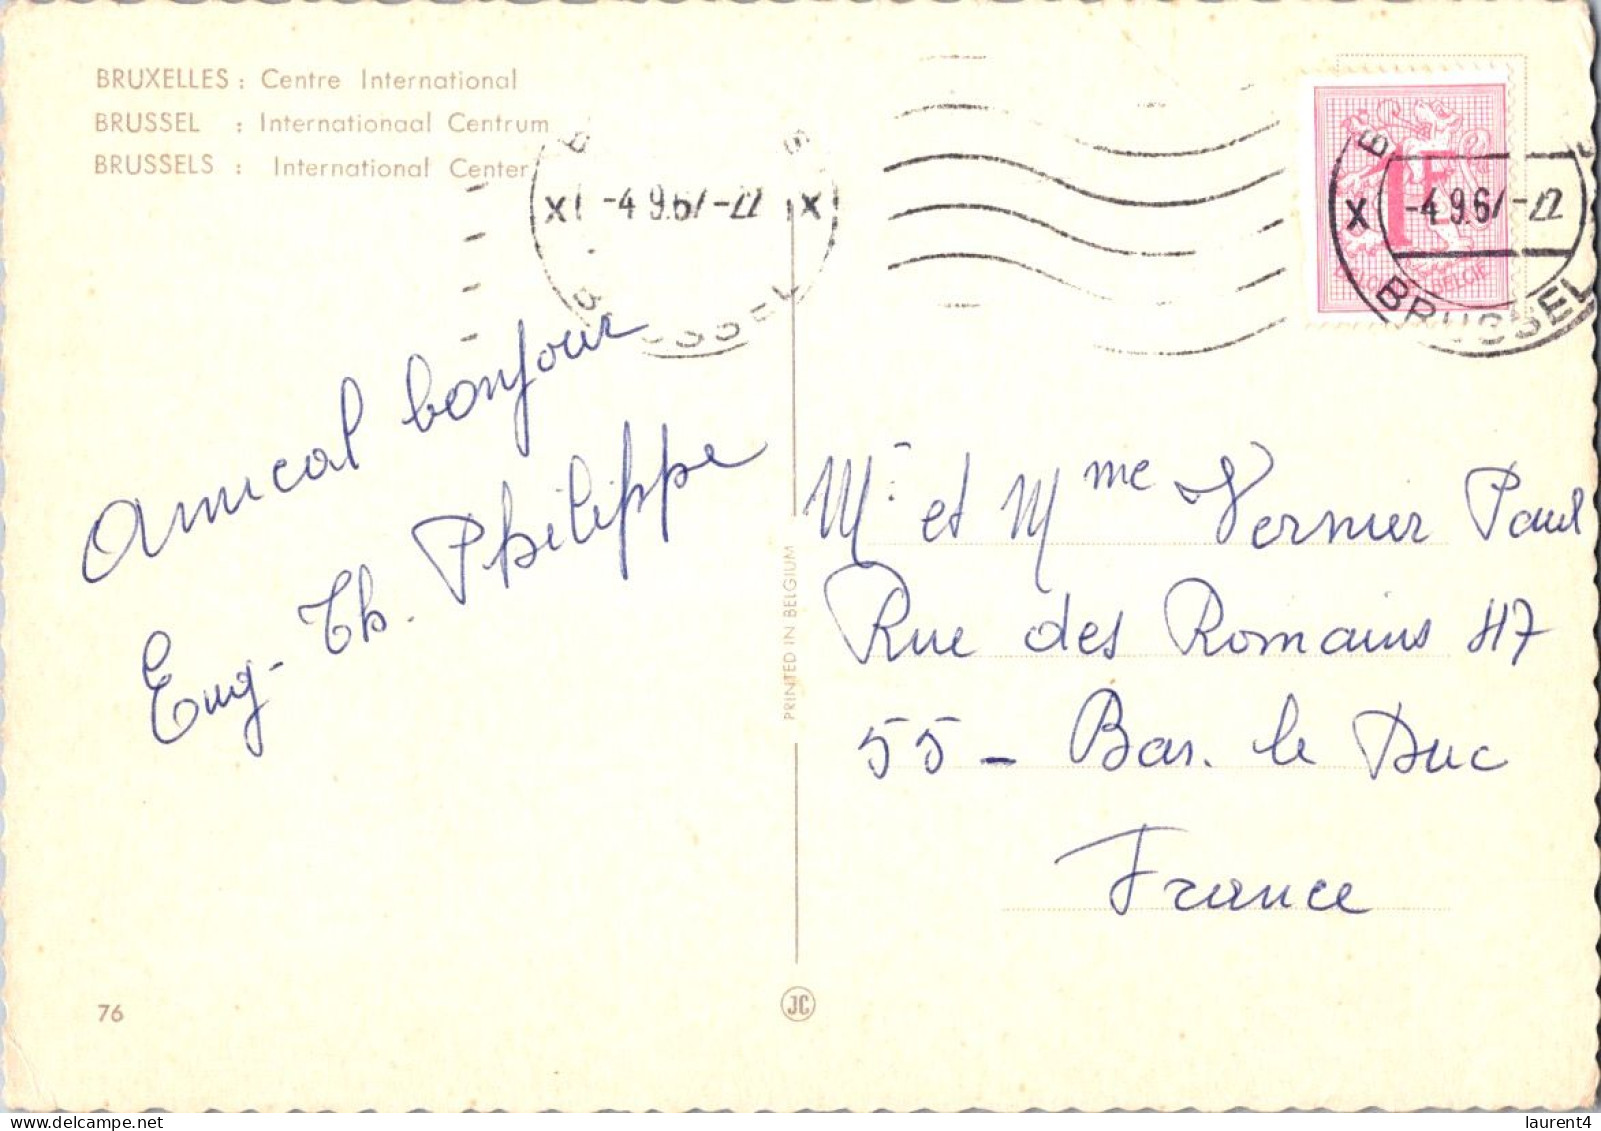 BRUXELLES : Centre International
BRUSSEL : Internationaal Centrum
BRUSSELS : International Center
X -4.9.67-22 X
BRUSSEL
X -4.9.67-22
BRUSSEL
1F
BELGIE
Amical bonjour
Eug- Th. Philippe
PRINTED IN BELGIUM
Mr. et Mme Vernier Paul
Rue des Romains 47
55 - Bar. le Duc
France
76
JC
delcampe.net
laurent4